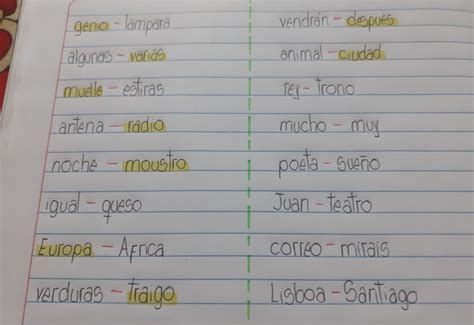 genio - lámpara
algunos - varias
muelle - estiras
antena - radio
noche - moustro
igual - queso
Europa - Africa
verduras - traigo
vendrán - después
animal - ciudad
rey - trono
mucho - muy
poeta - sueño
Juan - teatro
correo - mirais
Lisboa - Santiago